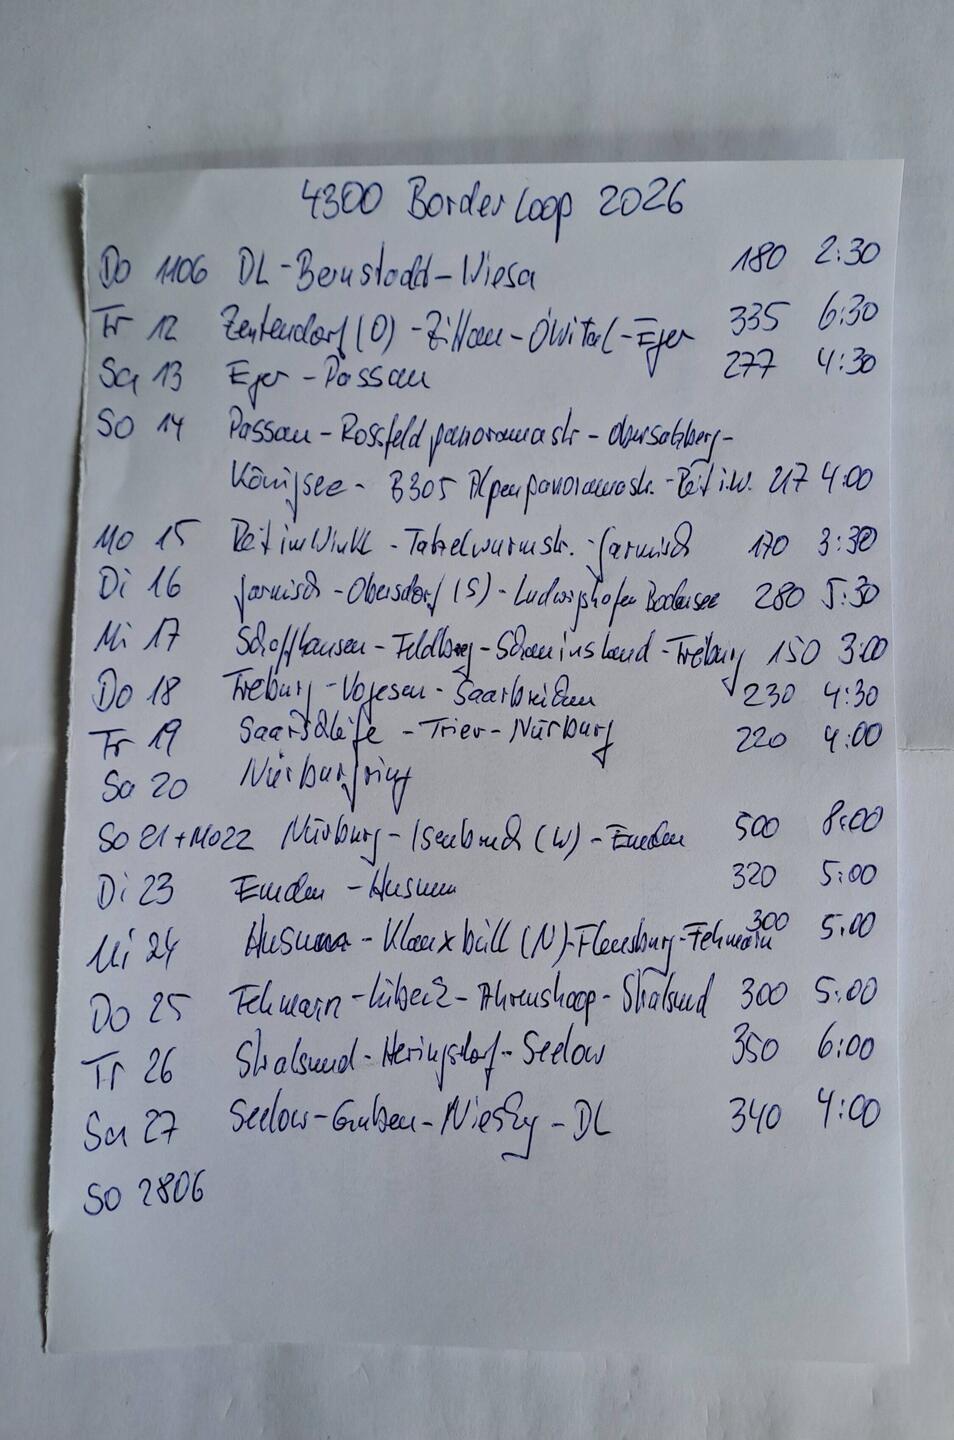 4300 Border Loop 2026
Do 1106 DL - Bernstadt - Wiesa 180 2:30
Fr 12 Zentendorf (O) - Zittau - Ówital - Eger 335 6:30
Sa 13 Eger - Passau 277 4:30
SO 14 Passau - Rossfeldpanoramastr - Obersalzberg -
Königsee - B305 Alpenpanoramastr. - Reit i.W. 217 4:00
Mo 15 Reit im Winkl - Tatzelwurmstr. - Garmisch 170 3:30
Di 16 Garmisch - Obersdorf (S) - Ludwigshafen Bodensee 280 5:30
Mi 17 Schaffhausen - Feldberg - Schauinsland - Freiburg 150 3:00
Do 18 Freiburg - Vogesen - Saarbrücken 230 4:30
Fr 19 Saarschleife - Trier - Nürburg 220 4:00
Sa 20 Nürburgring
SO 21 + MO22 Nürburg - Isenbruch (W) - Emden 500 8:00
Di 23 Emden - Husum 320 5:00
Mi 24 Husum - Klanxbüll (N) - Flensburg - Fehmarn 300 5:00
Do 25 Fehmarn - Lübeck - Ahrenshoop - Stralsund 300 5:00
Fr 26 Stralsund - Heringsdorf - Seelow 350 6:00
Sa 27 Seelow - Guben - Niesky - DL 340 4:00
SO 2806